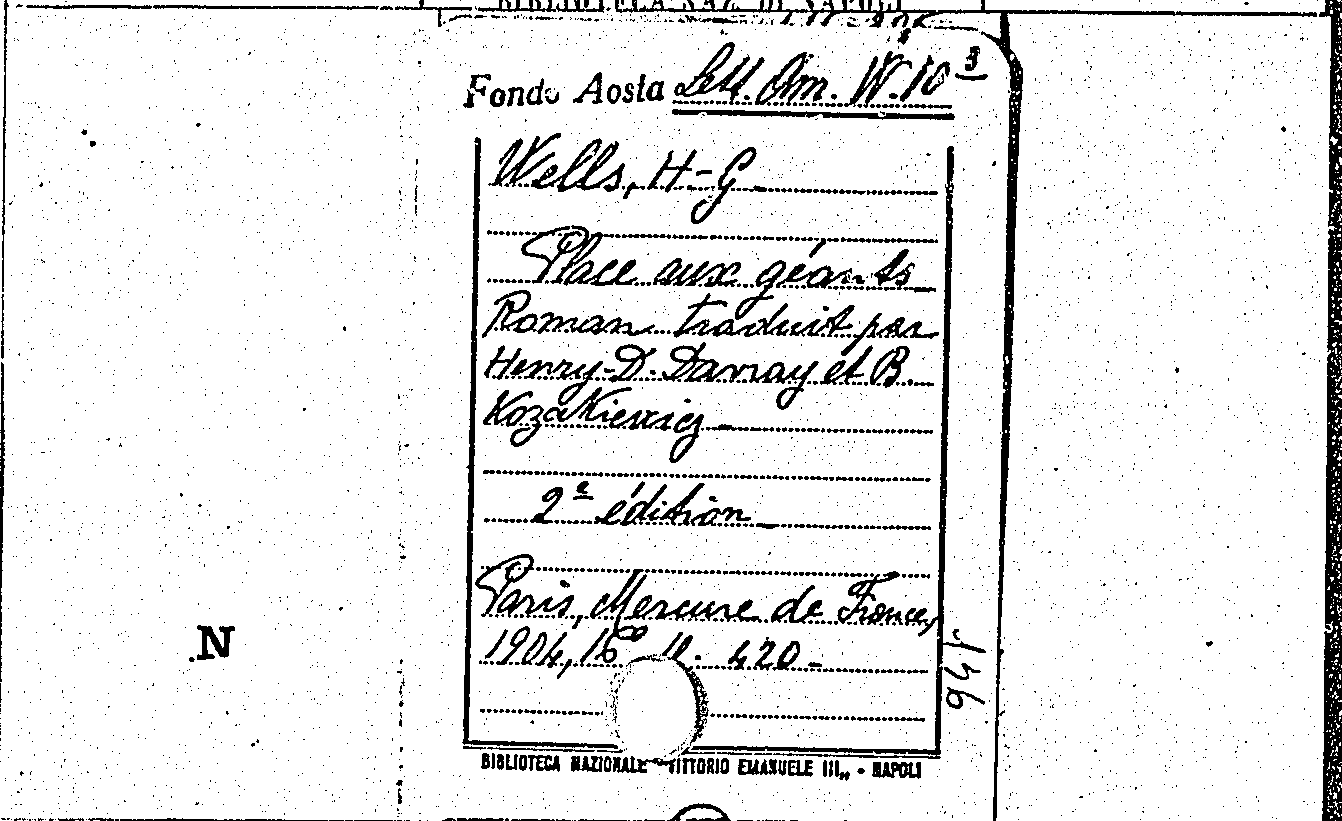 BIBLIOTECA NAZ. DI NAPOLI
Fondo Aosta Lett. Am. W. 10 3
Wells, H-G
Place aux géants
Roman traduit par
Henry-D. Davray et B.
Kozakiewicz
2e édition
Paris, Mercure de France,
1904, 16º p. 420
N
BIBLIOTECA NAZIONALE "VITTORIO EMANUELE III„ - NAPOLI